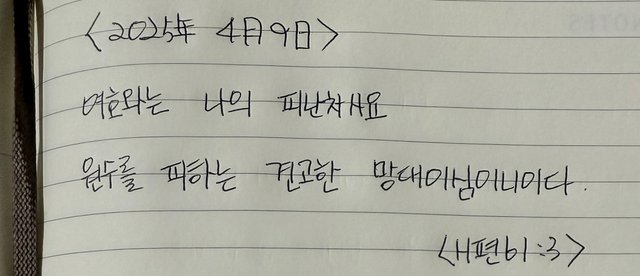 <2025年 4月9日>
여호와는 나의 피난처시요
원수를 피하는 견고한 망대이심이니이다.
<시편61:3>
NOTES